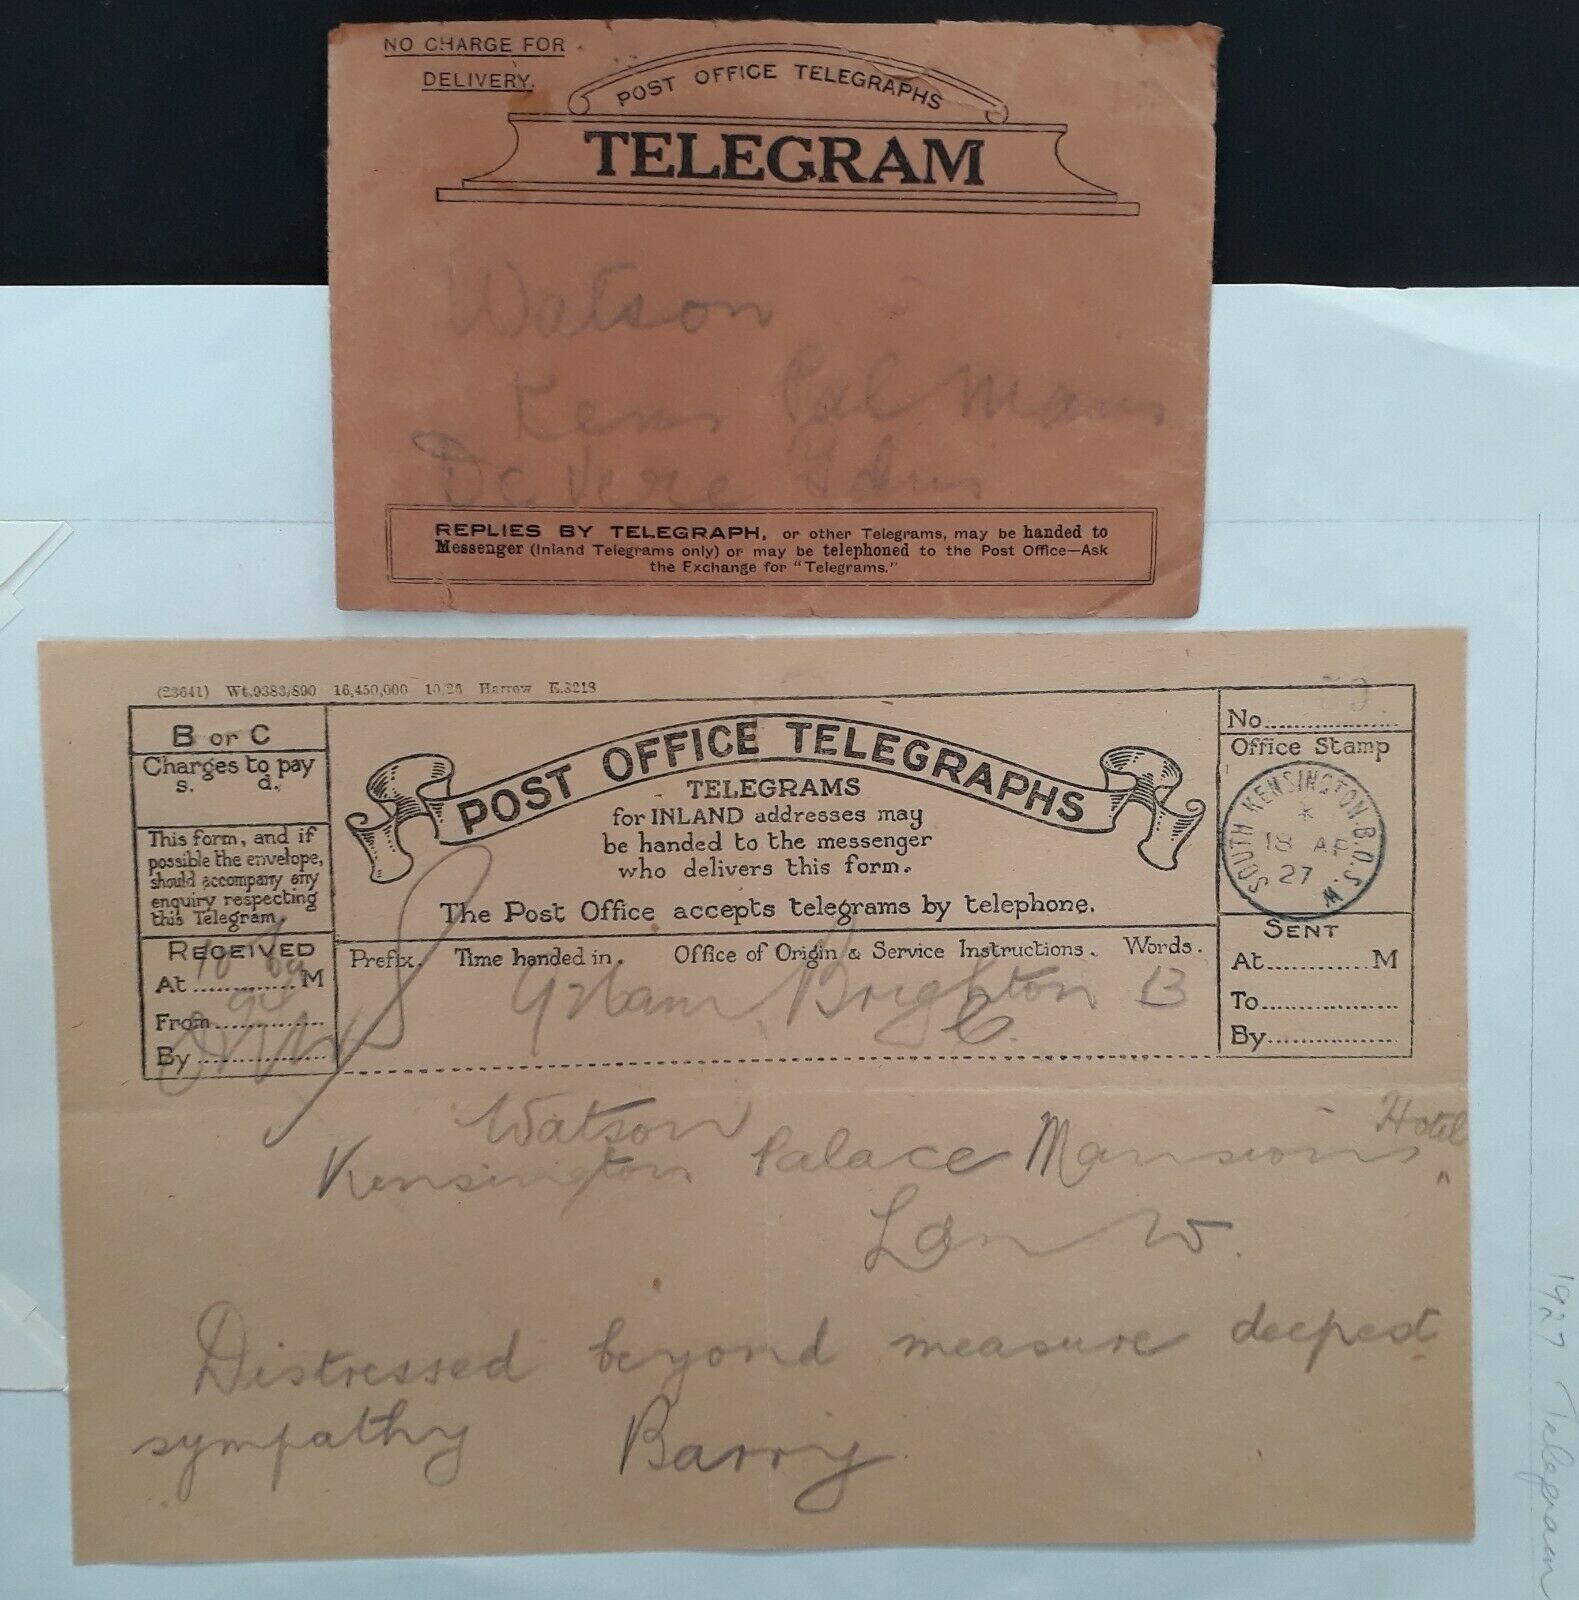 NO CHARGE FOR
DELIVERY.
POST OFFICE TELEGRAPHS
TELEGRAM
Watson
Kens Pal Mans
De Vere Gdns
REPLIES BY TELEGRAPH, or other Telegrams, may be handed to
Messenger (Inland Telegrams only) or may be telephoned to the Post Office—Ask
the Exchange for "Telegrams."
(23641) Wt.9383/890 16,450,000 10/26 Harrow E.3218
B or C
Charges to pay
s. d.
This form, and if
possible the envelope,
should accompany any
enquiry respecting
this Telegram.
RECEIVED
At M
From
By
POST OFFICE TELEGRAPHS
TELEGRAMS
for INLAND addresses may
be handed to the messenger
who delivers this form.
The Post Office accepts telegrams by telephone.
Prefix. Time handed in. Office of Origin & Service Instructions. Words.
Brighton 13
No
Office Stamp
SOUTH KENSINGTON B.O.S.W.
18 AP
27
SENT
At M
To
By
Watson
Kensington Palace Mansions Hotel
Lon W.
Distressed beyond measure deepest
sympathy Barry
1927 Telegram